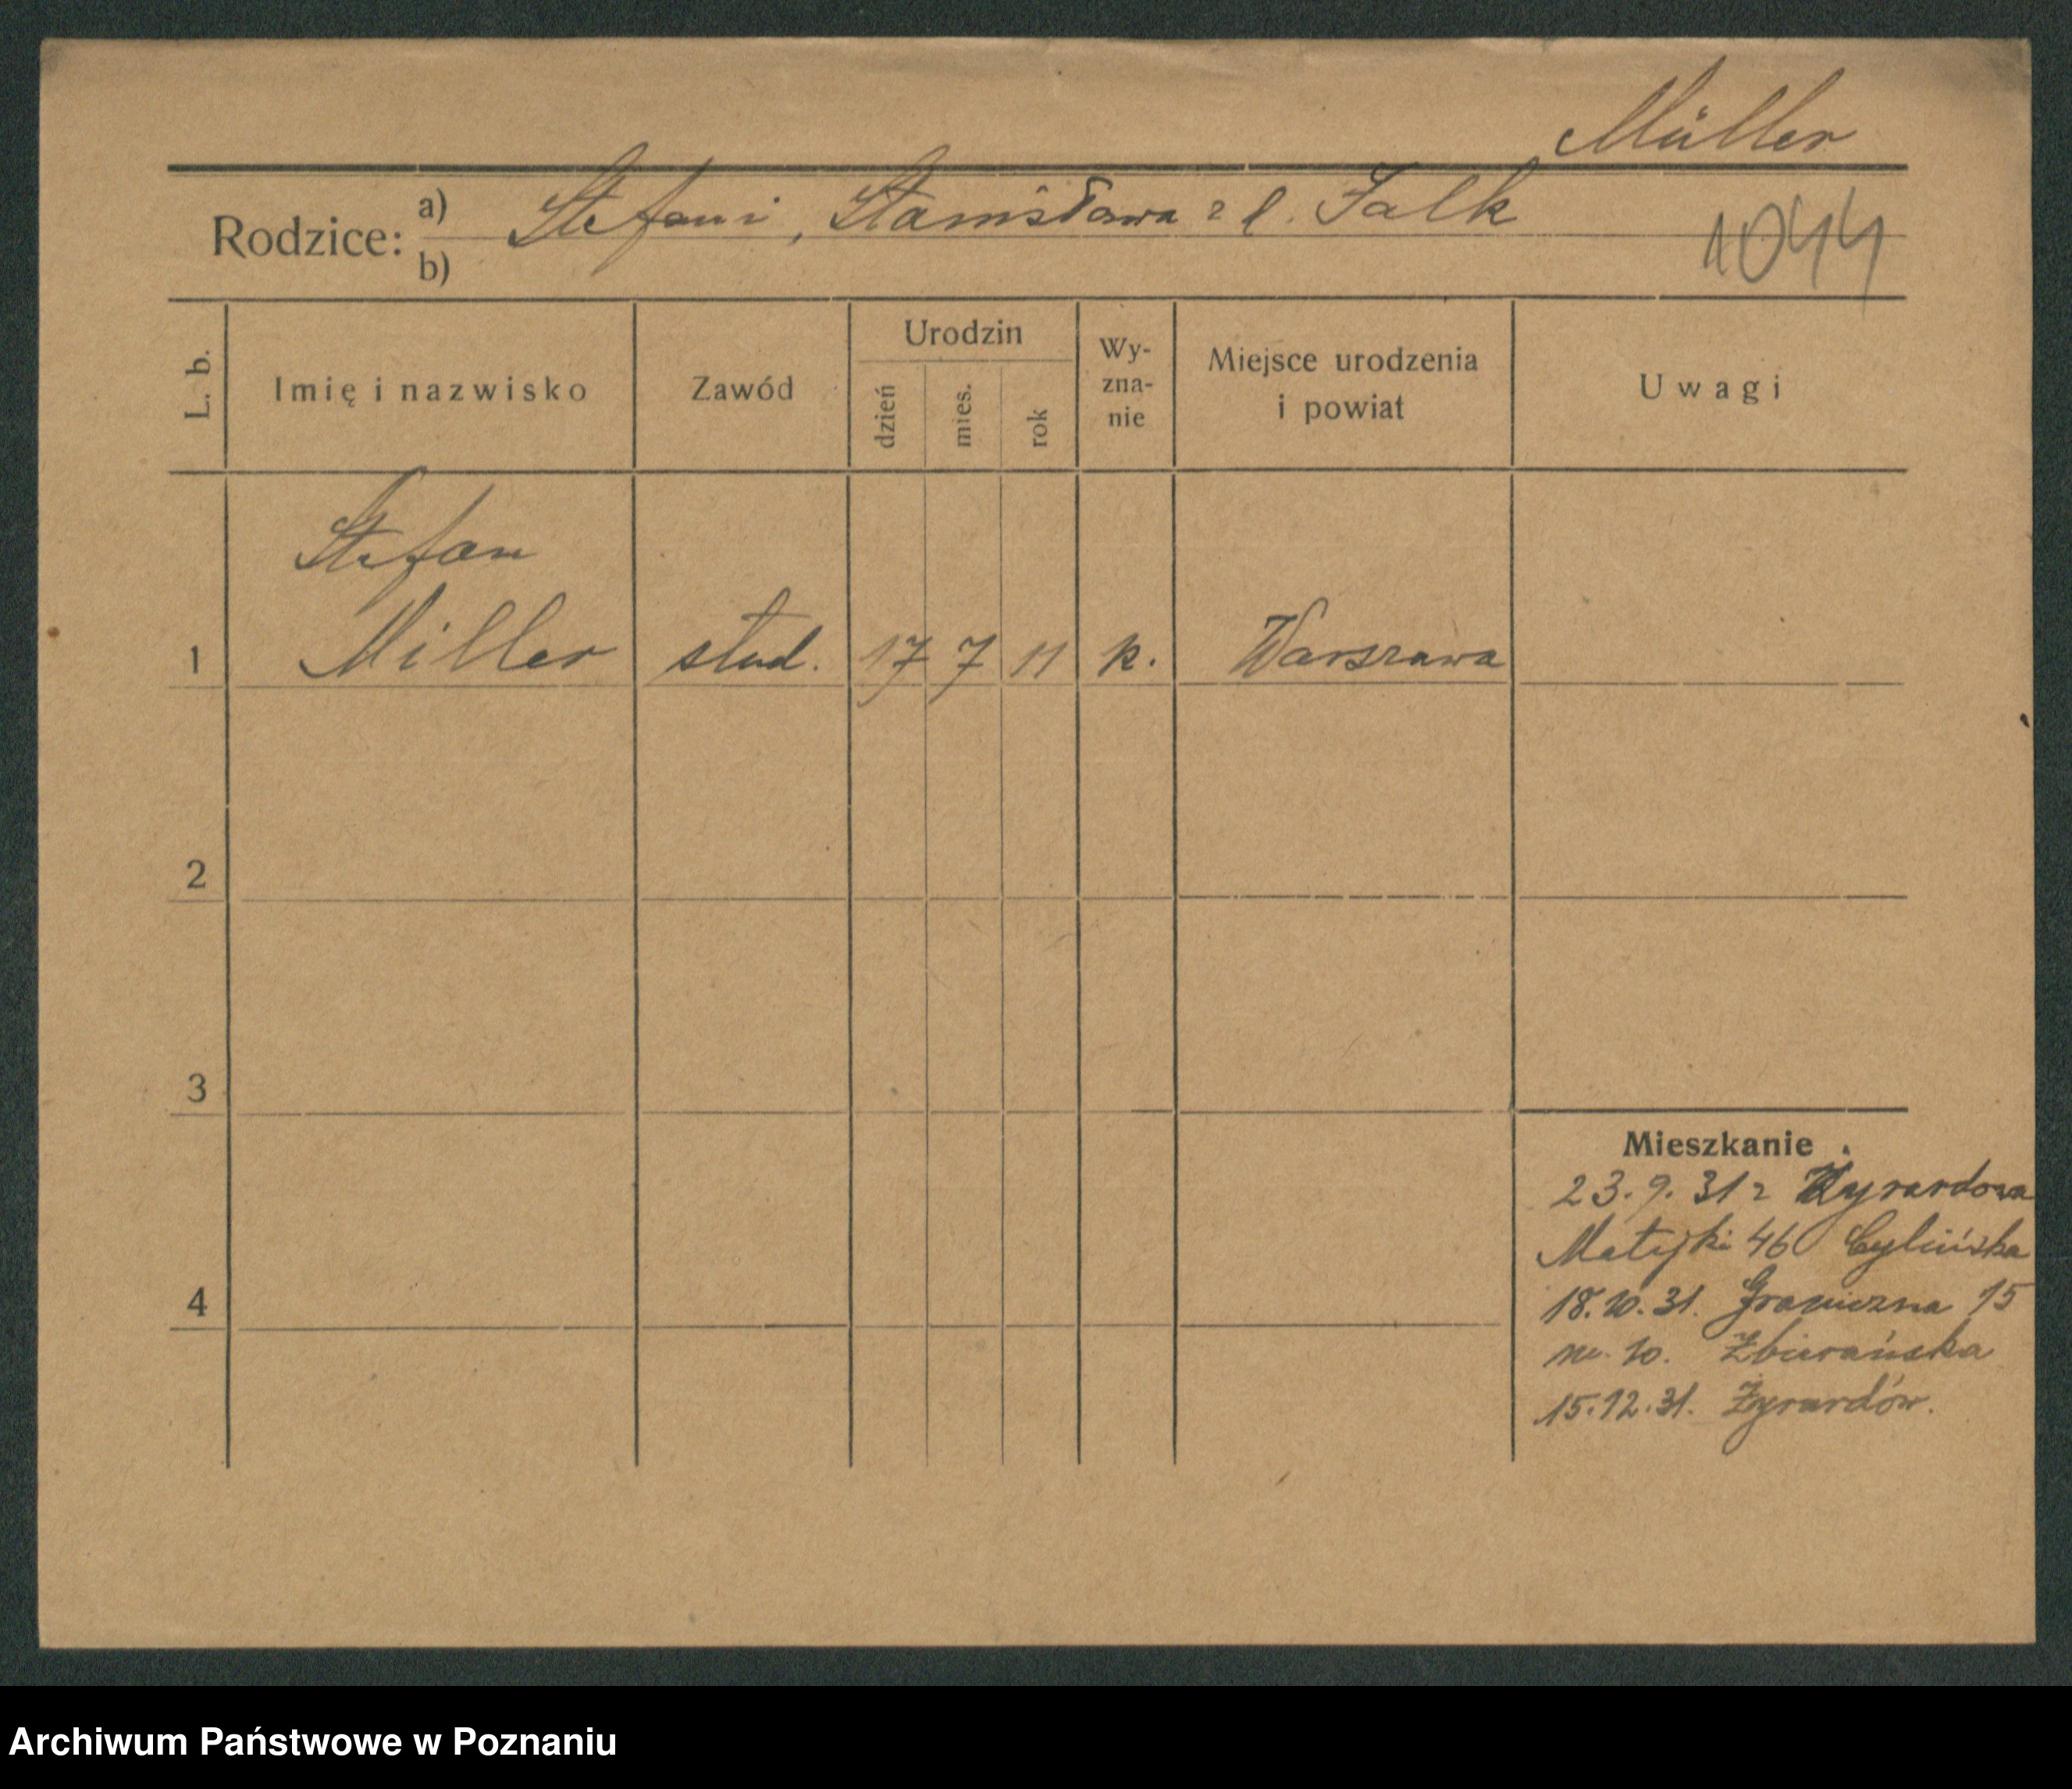 Müller
Rodzice: a) Stefan i, Stanisława z d. Falk
b)
1044
L. b.
Imię i nazwisko
Zawód
Urodzin
dzień
mies.
rok
Wy-
zna-
nie
Miejsce urodzenia
i powiat
Uwagi
Stefan
1 Miller stud. 17 7 11 k. Warszawa
2
3
Mieszkanie
23.9.31 z Żyrardowa
Matejki 46 Cylińska
4
18.10.31. Graniczna 15
m. 10.
15.12.31. Żyrardów.
Archiwum Państwowe w Poznaniu